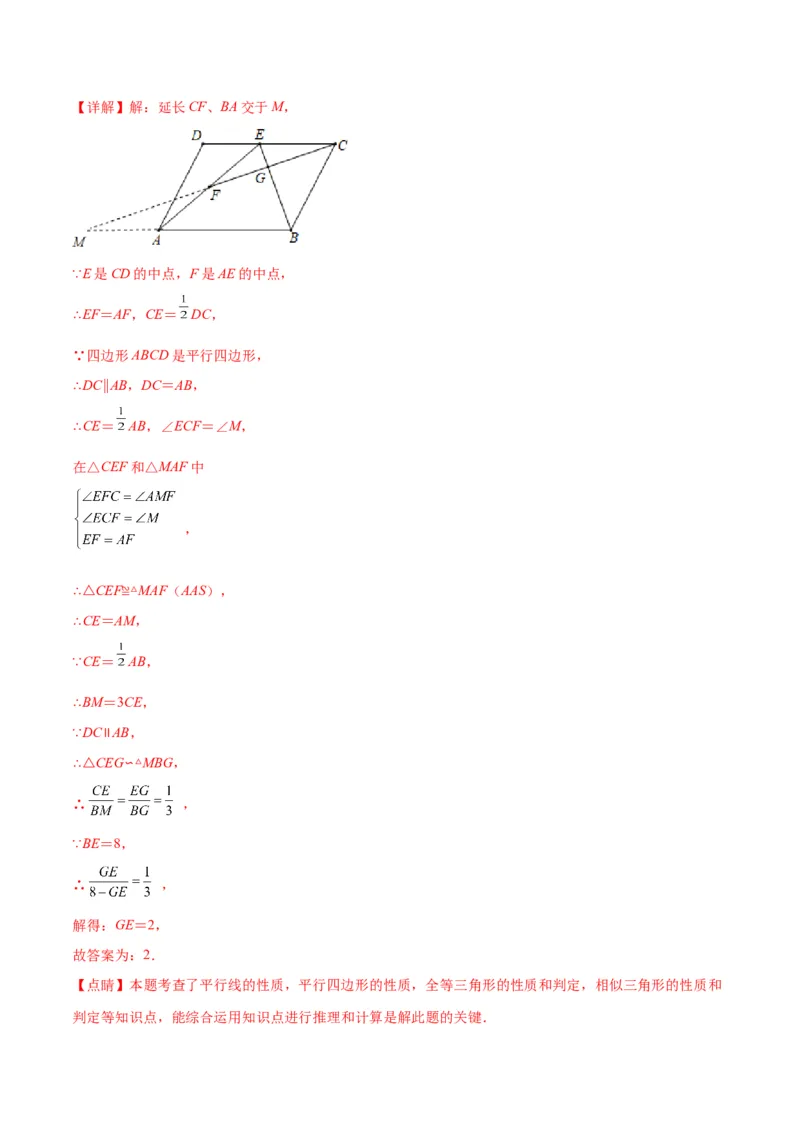 【详解】解：延长CF、BA交于M，
D E C
G
F
M A B
∵E是CD的中点，F是AE的中点，
∴EF＝AF，CE＝1/2 DC，
∵四边形ABCD是平行四边形，
∴DC∥AB，DC＝AB，
∴CE＝1/2 AB，∠ECF＝∠M，
在△CEF和△MAF中
{∠EFC=∠AMF
∠ECF=∠M
EF=AF ，
∴△CEF≌△MAF（AAS），
∴CE＝AM，
∵CE＝1/2 AB，
∴BM＝3CE，
∵DC∥AB，
∴△CEG∽△MBG，
∴CE/BM=EG/BG=1/3 ，
∵BE＝8，
∴GE/(8−GE)=1/3 ，
解得：GE＝2，
故答案为：2．
【点睛】本题考查了平行线的性质，平行四边形的性质，全等三角形的性质和判定，相似三角形的性质和
判定等知识点，能综合运用知识点进行推理和计算是解此题的关键．